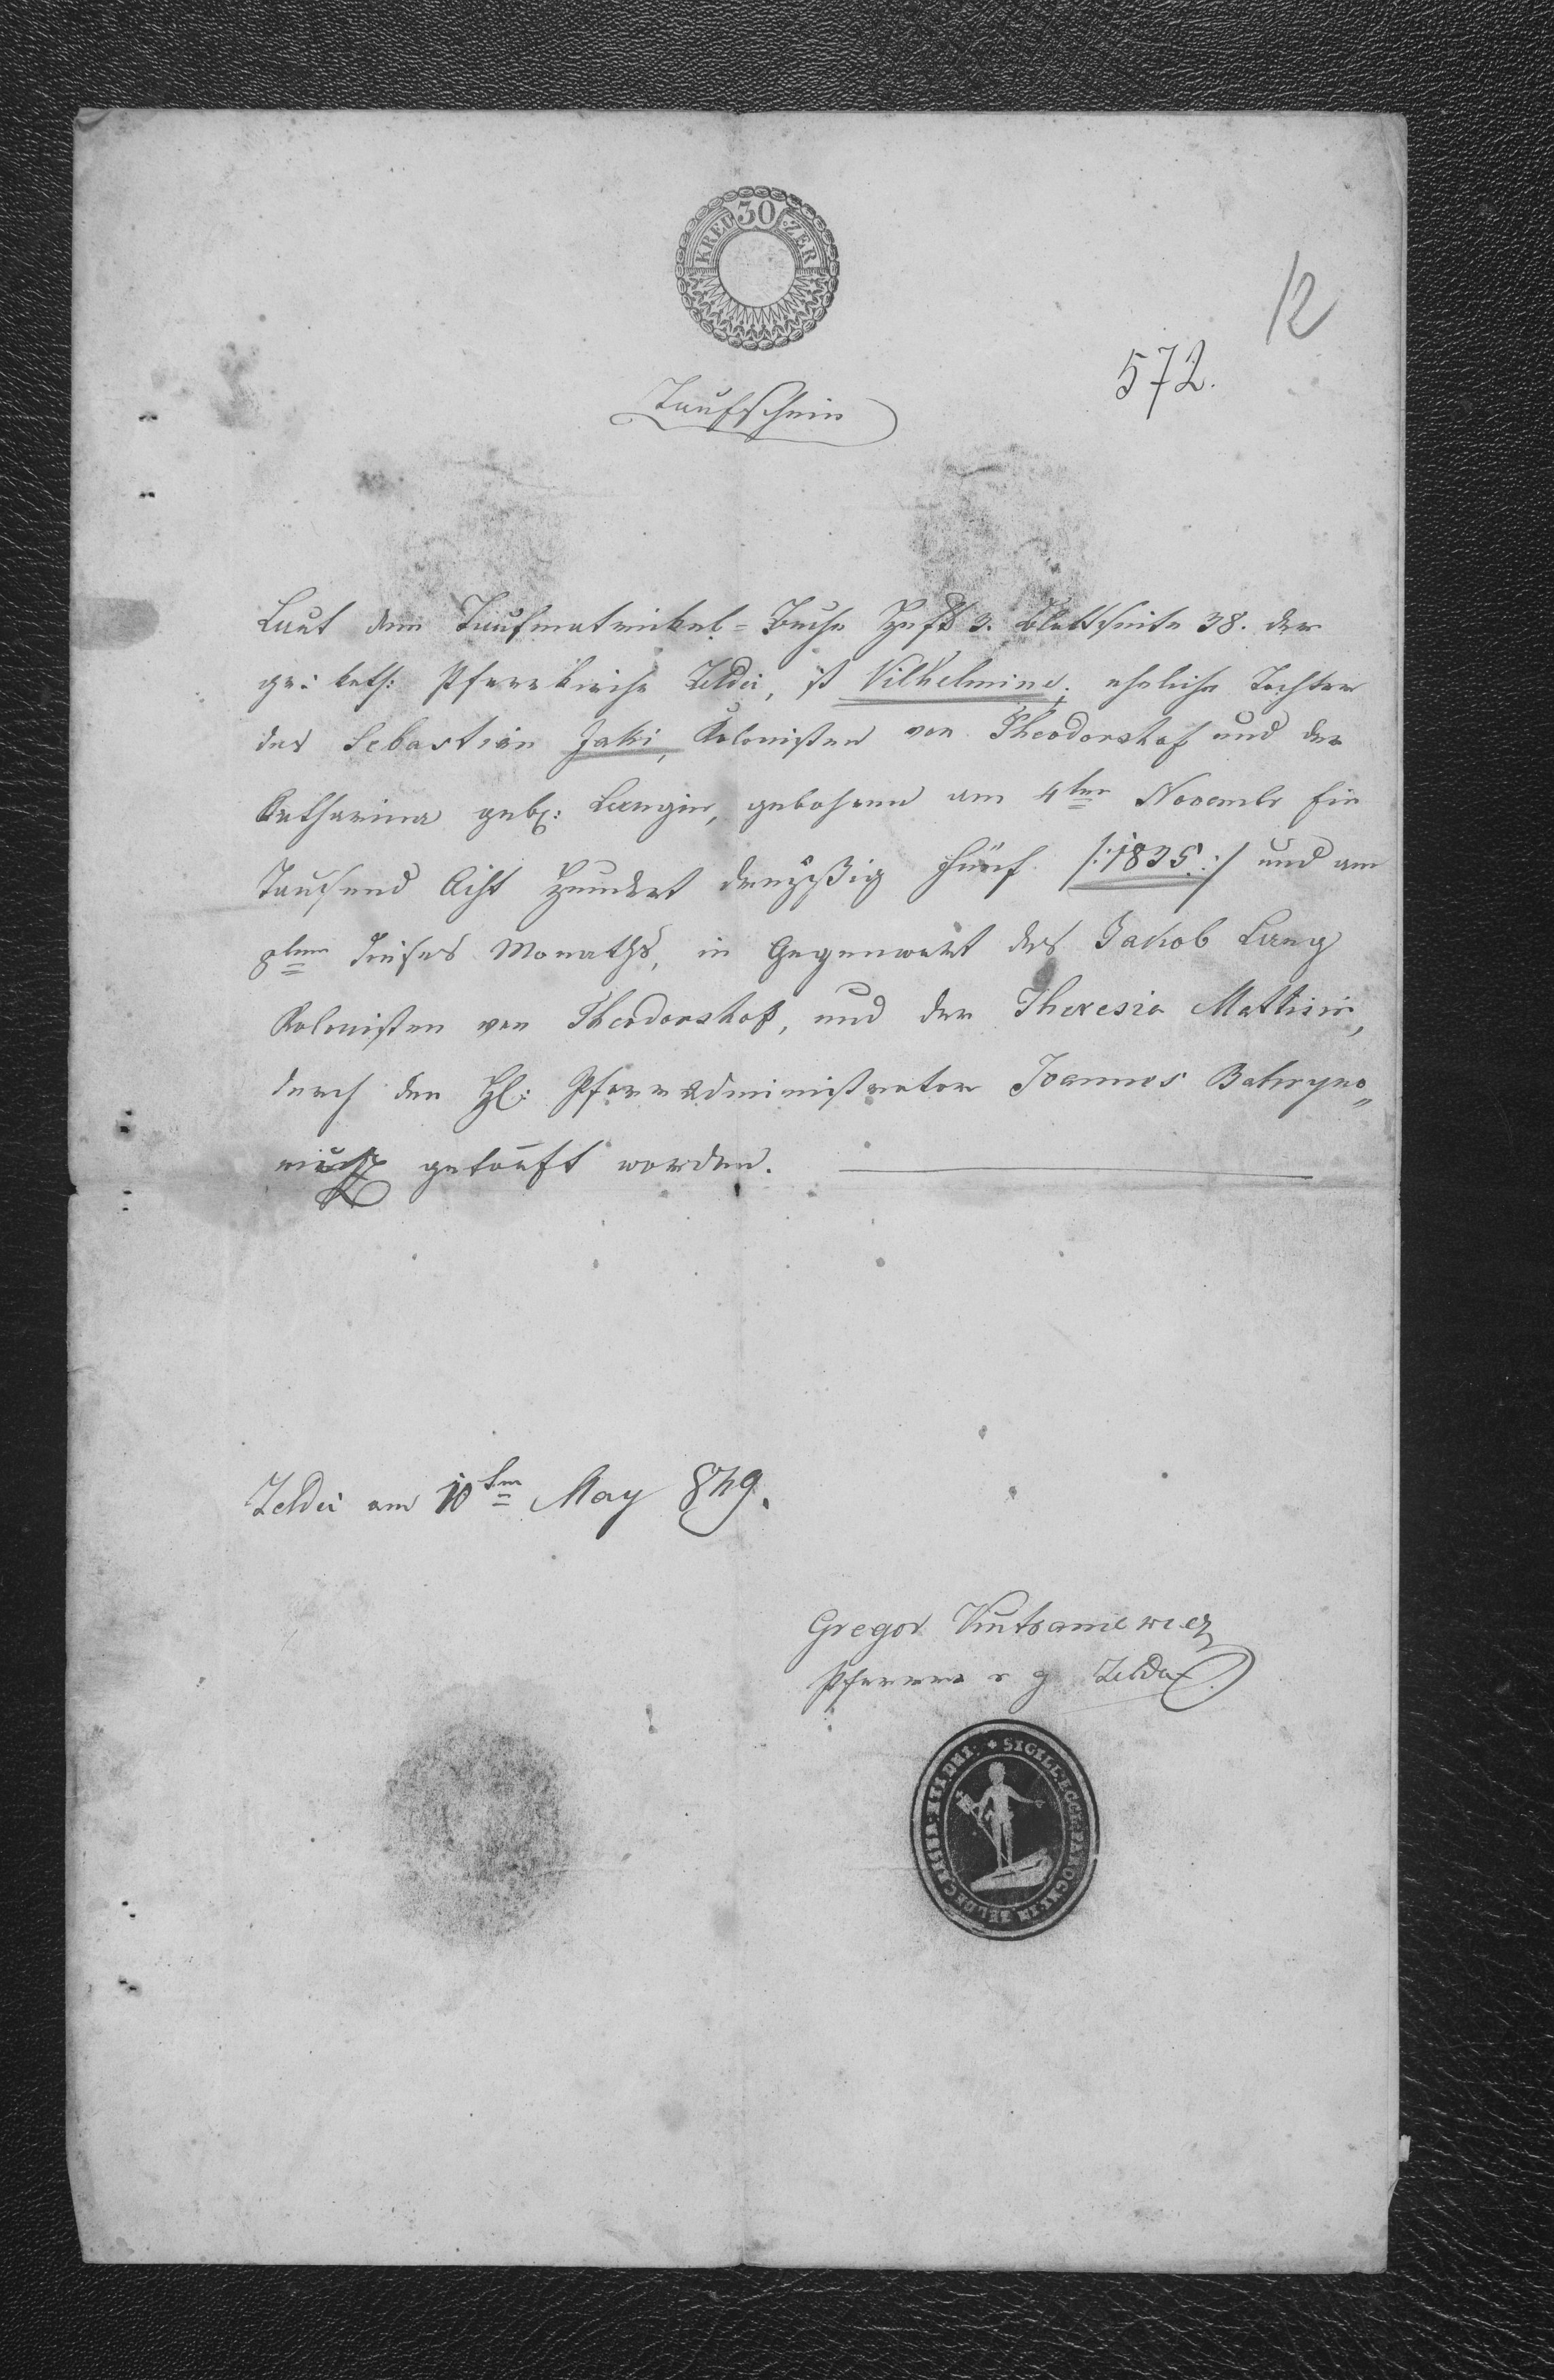 30
KREUZER
12
572.
Taufschein
Laut dem Taufmatrickel=Buche Heft 3. Blattseite 38. der
gr: kath: Pfarrkirche Zeldei, ist Vilhelmine, eheliche Tochter
des Sebastian Jaki, Kolonisten von Theodorshof und der
Katharina geb: Langin, gebohren am 4ten Novembr Ein
Tausend Acht Hundert dreyßig fünf /:1835:/ und am
8ten dieses Monaths, in Gegenwart des Jakob Lang
Kolonisten von Theodorshof, und der Theresia
durch den H: Pfarradministrator Joannes
getauft worden.
Zeldei am 10ten May 849.
Gregor
Pfarrer r g
+ SIGILL: ECCL: PAROCH: IN ZELDEC